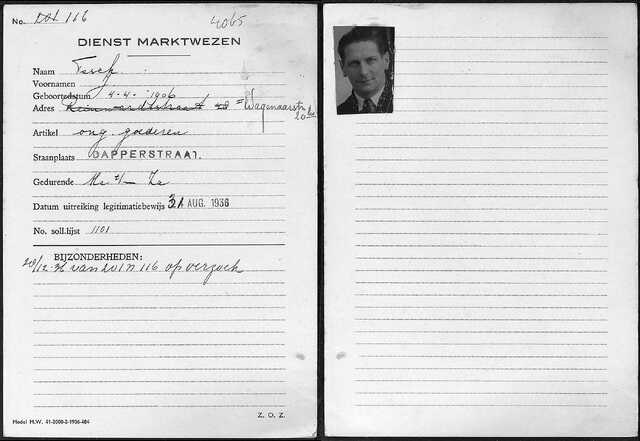 No. 116 4065
DIENST MARKTWEZEN
Naam
Voornamen J
Geboortedatum 4-4-1906
Adres Reinwardtstraat = Wagenaarstr.
Artikel ong. goederen
Staanplaats DAPPERSTRAAT.
Gedurende t/m Za
Datum uitreiking legitimatiebewijs 31 AUG. 1936
No. soll.lijst 1101
BIJZONDERHEDEN:
/12-36 van 116 op verzoek
Z. O. Z.
Model M.W. 41-2000-2-1936-484